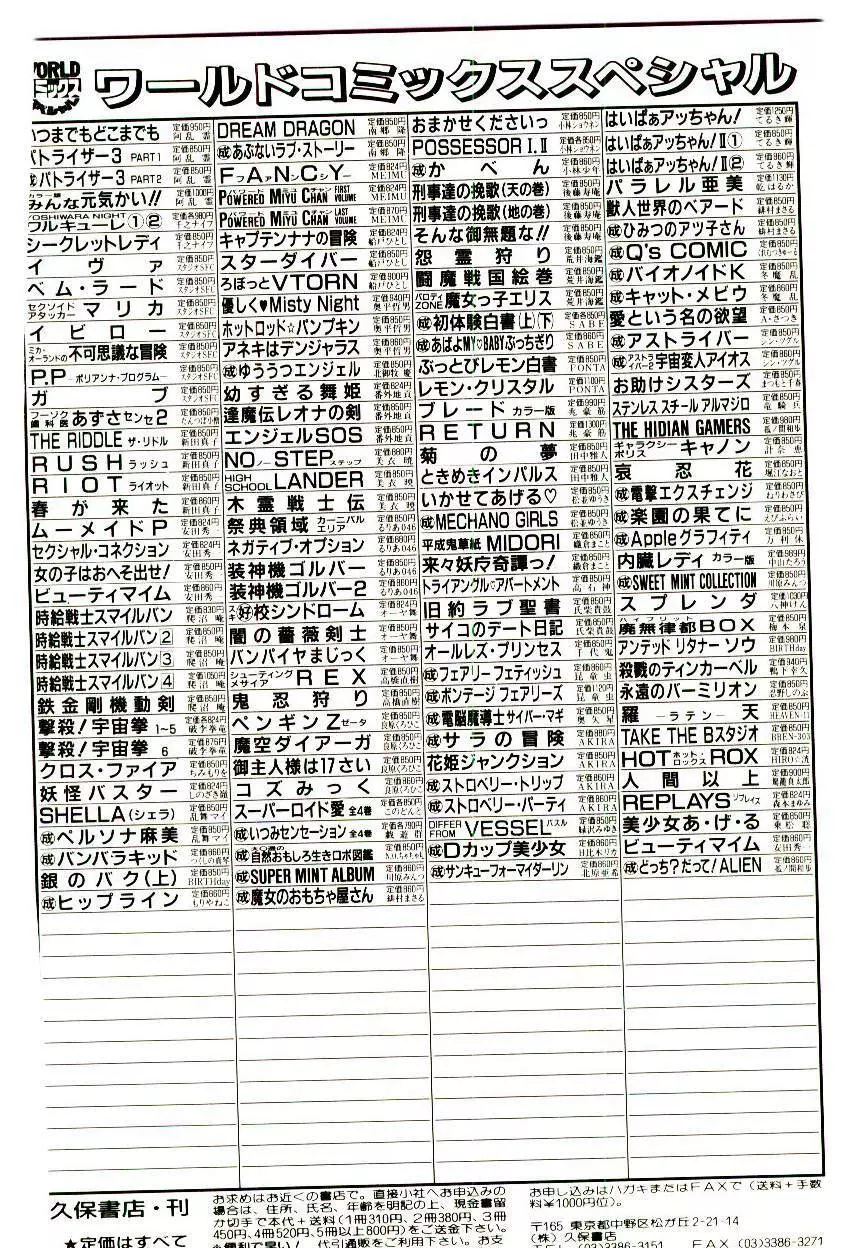 WORLD
ワールドコミックススペシャル
いつまでもどこまでも 定価950円 阿乱霊
バトライザー3 PART1 定価850円 阿乱霊
成バトライザー3 PART2 定価860円 阿乱霊
みんな元気かい!! 定価1000円 阿乱霊
YOSHIWARA NIGHT
ワルキューレ①② 定価各980円
シークレットレディ 定価850円
イヴァ 定価850円 スタジオSFC
ベム・ラード 定価850円 スタジオSFC
セクソイドアタッカー マリカ 定価850円 スタジオSFC
イビロー 定価850円 スタジオSFC
ミカ・オーランドの不可思議な冒険 定価850円 スタジオSFC
P.P. ーポリアンナ・プログラムー 定価850円 スタジオSFC
ガブ 定価850円 スタジオSFC
フーゾク歯科医 あずさセンセ2 定価850円
THE RIDDLE ザ・リドル 定価850円 新田真子
RUSH ラッシュ 定価850円 新田真子
RIOT ライオット 定価850円 新田真子
春が来た 定価860円 新田真子
ムーメイドP 定価824円 安田秀一
セクシャル・コネクション 定価824円 安田秀一
女の子はおへそ出せ! 定価850円 安田秀一
ビューティマイム 定価860円 安田秀一
時給戦士スマイルバン 定価830円 爬沼庵
時給戦士スマイルバン 2 定価850円 爬沼庵
時給戦士スマイルバン 3 定価850円 爬沼庵
時給戦士スマイルバン 4 定価1050円 爬沼庵
鉄金剛機動剣 定価850円 爬沼庵
撃殺!宇宙拳 1-5 定価各824円 破李拳竜
撃殺!宇宙拳 6 定価876円 破李拳竜
クロス・ファイア 定価850円 ちみもりを
妖怪バスター 定価824円 しのざき嶺
SHELLA(シェラ) 定価850円 乱舞マイ
成ペルソナ麻美 定価850円 乱舞マイ
成バンバラキッド 定価860円 つくしの真琴
銀のバク(上) 定価860円 BIRTHday
成ヒップライン 定価860円 もりやねこ
DREAM DRAGON 定価850円 南郷隆
成あぶないラブ・ストーリー 定価850円 南郷隆
FANCY 定価824円 MEIMU
POWERED MIYU CHAN FIRST VOLUME 定価824円 MEIMU
POWERED MIYU CHAN LAST VOLUME 定価870円 MEIMU
キャプテンナナの冒険 定価824円 船戸ひとし
スターダイバー 定価850円 船戸ひとし
ろぼっとVTORN 定価800円 船戸ひとし
優しく♥Misty Night 定価840円 奥平哲男
ホットロッド☆パンプキン 定価850円 奥平哲男
アネキはデンジャラス 定価860円 奥平哲男
成ゆううつエンジェル 定価860円 北御牧慶
幼すぎる舞姫 定価824円 番外地貢
逢魔伝レオナの剣 定価850円 番外地貢
エンジェルSOS 定価850円 番外地貢
NO STEP ノー ステップ 定価860円 美衣暁
HIGH SCHOOL LANDER 定価850円 美衣暁
木霊戦士伝 定価850円 美衣暁
祭典領域 カーニバルエリア 定価850円 るりあ046
ネガティブ・オプション 定価880円 るりあ046
装神機ゴルバー 定価850円 るりあ046
装神機ゴルバー2 定価860円 るりあ046
スキ好校シンドローム 定価824円 オーヤ舞
闇の薔薇剣士 定価850円 オーヤ舞
バンパイヤまじっく 定価850円 オーヤ舞
シューティングメサイア REX 定価850円 高橋直樹
鬼忍狩り 定価850円 高橋直樹
ペンギンZ ゼータ 定価850円 良原くろひこ
魔空ダイアーガ 定価850円 良原くろひこ
御主人様は17さい 定価850円 良原くろひこ
コズみっく 定価860円 良原くろひこ
スーパーロイド愛 全4巻 定価各850円 このどんと
成いつみセンセーション 全4巻 定価各790円 薮遊郡
成自然おもしろ生きロボ図鑑 定価850円
成SUPER MINT ALBUM 定価860円 川原みんつ
成魔女のおもちゃ屋さん 定価860円 緋村まさる
おまかせくださいっ 定価850円 小林ショウネン
POSSESSOR I.II 定価各850円 小林ショウネン
成かべん 定価860円 小林少年
刑事達の挽歌(天の巻) 定価850円 後藤寿庵
刑事達の挽歌(地の巻) 定価850円 後藤寿庵
そんな御無題な!! 定価850円 後藤寿庵
怨霊狩り 定価850円 荒井海鑑
闘魔戦国絵巻 定価850円 荒井海鑑
パロディZONE 魔女っ子エリス 定価850円 荒井海鑑
成初体験白書(上)(下) 定価各850円 SABE
成あばよMY♡BABYぶっちぎり 定価860円 SABE
ぶっとびレモン白書 定価850円 PONTA
レモン・クリスタル 定価1100円 PONTA
ブレード カラー版 定価990円 兆豪筋
RETURN 定価1300円 兆豪筋
菊の夢 定価850円 田中雅人
ときめきインパルス 定価850円 田中雅人
いかせてあげる♡ 定価850円 松並ゆうき
成MECHANO GIRLS 定価850円 松並ゆうき
平成鬼草紙MIDORI 定価850円 磯倉まこと
来々妖斥奇譚っ! 定価860円 磯倉まこと
トライアングル♡アパートメント 定価850円 高石神
旧約ラブ聖書 定価850円 氏柴貴鼓
サイコのデート日記 定価850円 氏柴貴鼓
オールレズ・プリンセス 定価850円 千代鬼
成フェアリーフェティッシュ 定価860円 昆童虫
成ボンデージフェアリーズ 定価1120円 昆童虫
成電脳魔導士サイバー・マギ 定価850円 奥久星
成サラの冒険 定価880円 AKIRA
花姫ジャンクション 定価850円 AKIRA
成ストロベリー・トリップ 定価850円 AKIRA
成ストロベリー・パーティ 定価850円 AKIRA
DIFFER FROM VESSEL バスル 定価850円 城沢みゆき
成Dカップ美少女 定価860円 日比木リカ
成サンキューフォーマイダーリン 定価860円 北原亜希
はいぱぁアッちゃん! 定価1250円 てるき輝
はいぱぁアッちゃん!Ⅱ① 定価850円 てるき輝
はいぱぁアッちゃん!Ⅱ② 定価860円 てるき輝
パラレル亜美 定価1130円 乾はるか
獣人世界のベアード 定価850円 緋村まさる
成ひみつのアツ子さん 定価850円 緋村まさる
成Q's COMIC 定価850円
成バイオノイドK 定価850円 冬魔乱
成キャット・メビウ 定価860円 冬魔乱
愛という名の欲望 定価850円 A・さつき
成アストライバー 定価850円 シン・ツグル
成アストライバー2宇宙変人アイオス 定価860円 シン・ツグル
お助けシスターズ 定価850円 まつもと千春
ステンレス スチール アルマジロ 定価850円 竜騎兵
THE HIDIAN GAMERS 定価980円
ギャラクシーポリス キャノン 定価860円 計奈恵
哀忍花 定価850円 堀江なおと
成電撃エクスチェンジ 定価850円 ねりわさび
成楽園の果てに 定価850円 えびふらい
成Appleグラフィティ 定価850円 万利休
内臓レディ カラー版 定価989円 中山たろう
成SWEET MINT COLLECTION 定価850円 川原みんつ
スプレンダ 定価1030円 八神けん
ハイブリット 魔無律都BOX 定価850円 梅本泉
アンデッド リタナー ソウ 定価980円 BIRTHday
殺戮のティンカーベル 定価840円 鴨下幸久
永遠のバーミリオン 定価850円 忍野しのぶ
羅ーラテンー天 定価850円 HEAVEN-11
TAKE THE Bスタジオ 定価850円 BREN-303
HOT ホット・ロックス ROX 定価824円 HIRO公流
人間以上 定価900円
REPLAYS リプレイス 定価824円 森本まゆみ
美少女あ・げ・る 定価850円 東松聡
ビューティマイム 定価860円 安田秀一
成どっち?だって!ALIEN 定価860円
久保書店・刊
★定価はすべて
お求めはお近くの書店で。直接小社へお申込みの
場合は、住所、氏名、年齢を明記の上、現金書留
か切手で本代+送料(1冊310円、2冊380円、3冊
450円、4冊520円、5冊以上800円)をご送金下さい。
※便利で早い! 代引通販をご利用下さい。お支
お申し込みはハガキまたはFAXで(送料+手数
料¥1000円位)。
〒165 東京都中野区松が丘2-21-14
(株)久保書店
TEL (03)3386-3151 FAX (03)3386-3271